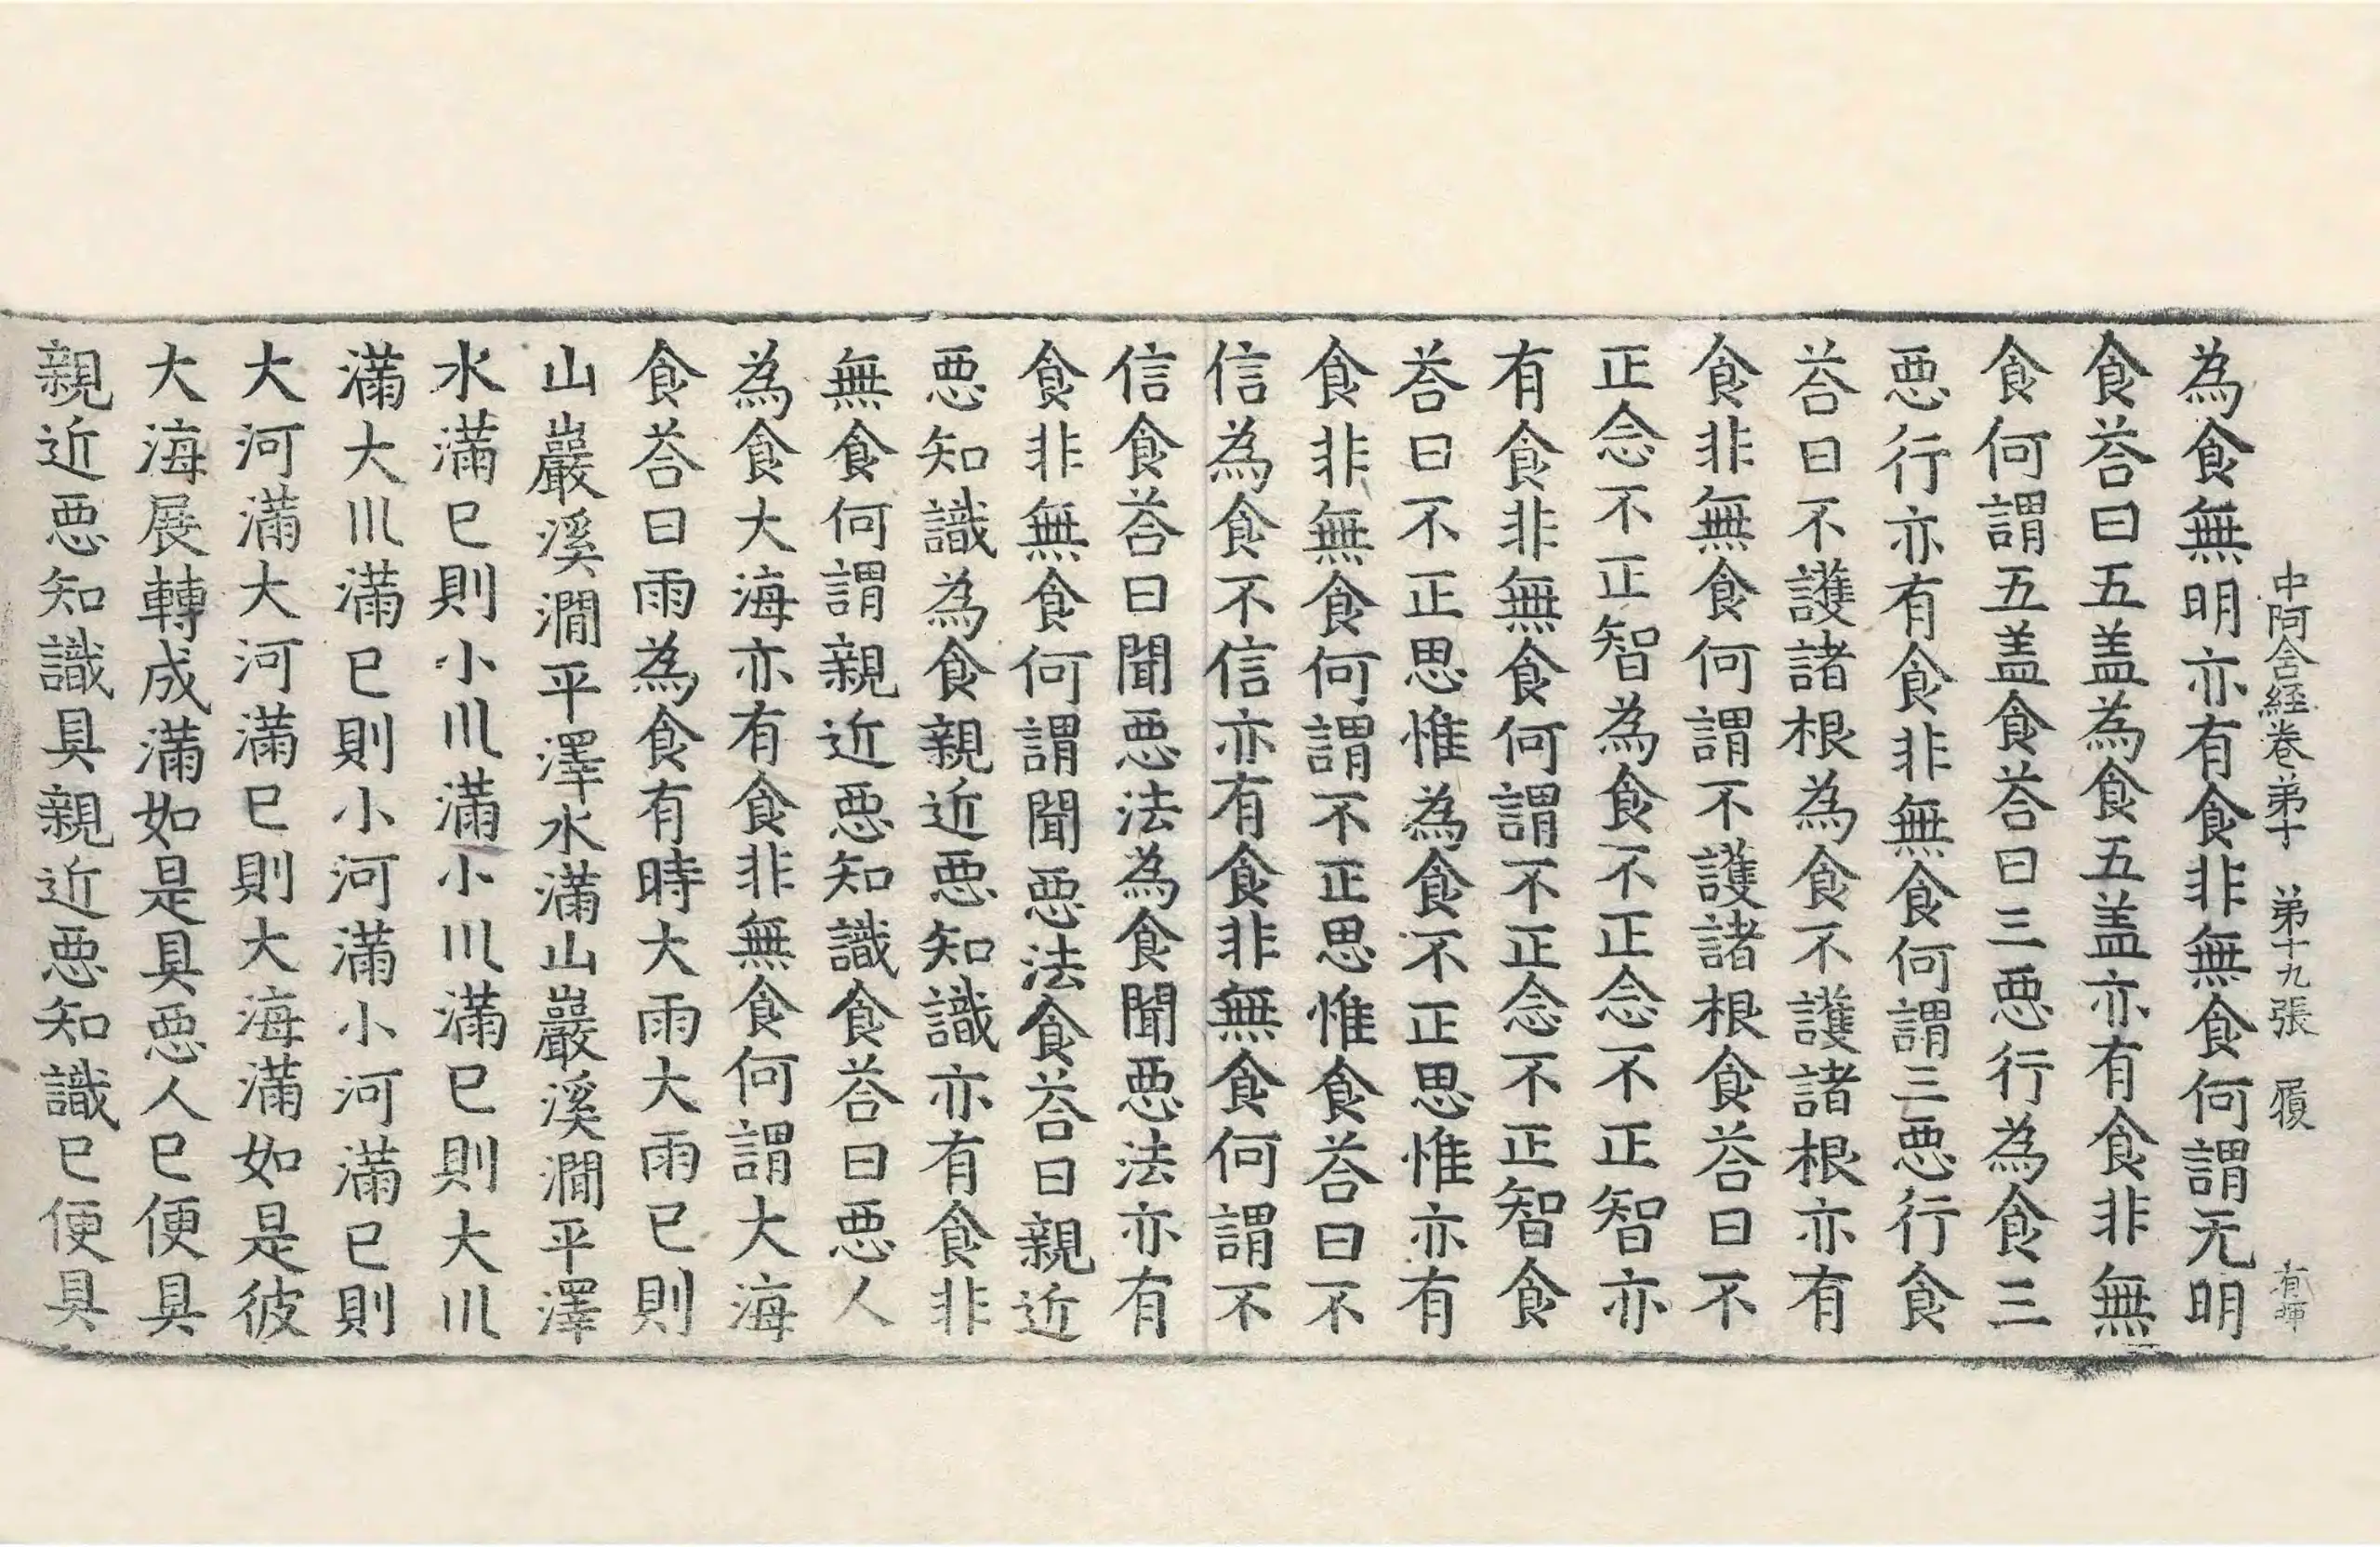 中阿含経卷弟十 弟十九張 履
為食無明亦有食非無食何謂无明
食荅曰五盖為食五盖亦有食非無
食何謂五盖食荅曰三悪行為食三
悪行亦有食非無食何謂三悪行食
荅曰不護諸根為食不護諸根亦有
食非無食何謂不護諸根食荅曰不
正念不正智為食不正念不正智亦
有食非無食何謂不正念不正智食
荅曰不正思惟為食不正思惟亦有
食非無食何謂不正思惟食荅曰不
信為食不信亦有食非無食何謂不
信食荅曰聞悪法為食聞悪法亦有
食非無食何謂聞悪法食荅曰親近
悪知識為食親近悪知識亦有食非
無食何謂親近悪知識食荅曰悪人
為食大海亦有食非無食何謂大海
食荅曰雨為食有時大雨大雨已則
山巖溪澗平澤水滿山巖溪澗平澤
水滿已則小川滿小川滿已則大川
滿大川滿已則小河滿小河滿已則
大河滿大河滿已則大海滿如是彼
大海展轉成滿如是具悪人已便具
親近悪知識具親近悪知識已便具